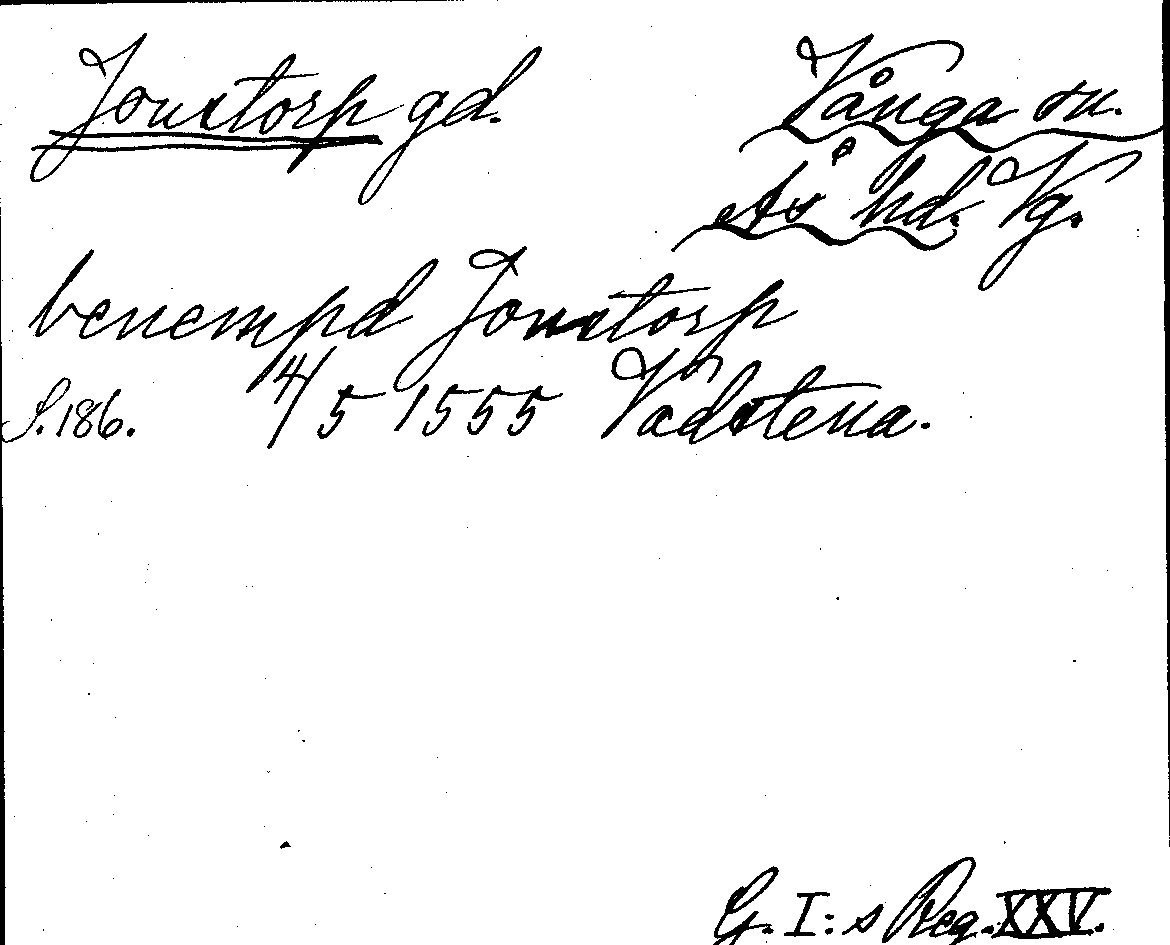 Jonstorp gd.
Vånga sn.
Ås hd. Vg.
benempd Jonstorp
S. 186. 14/5 1555 Vadstena.
G. I:s Reg. XXV.